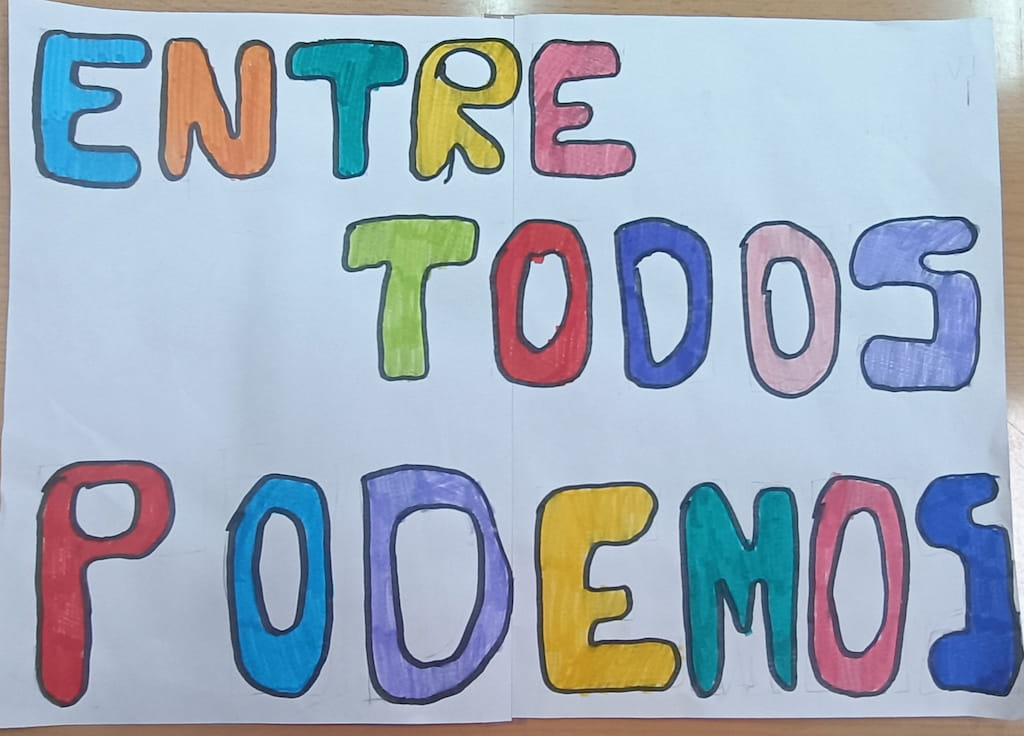 ENTRE
TODOS
PODEMOS